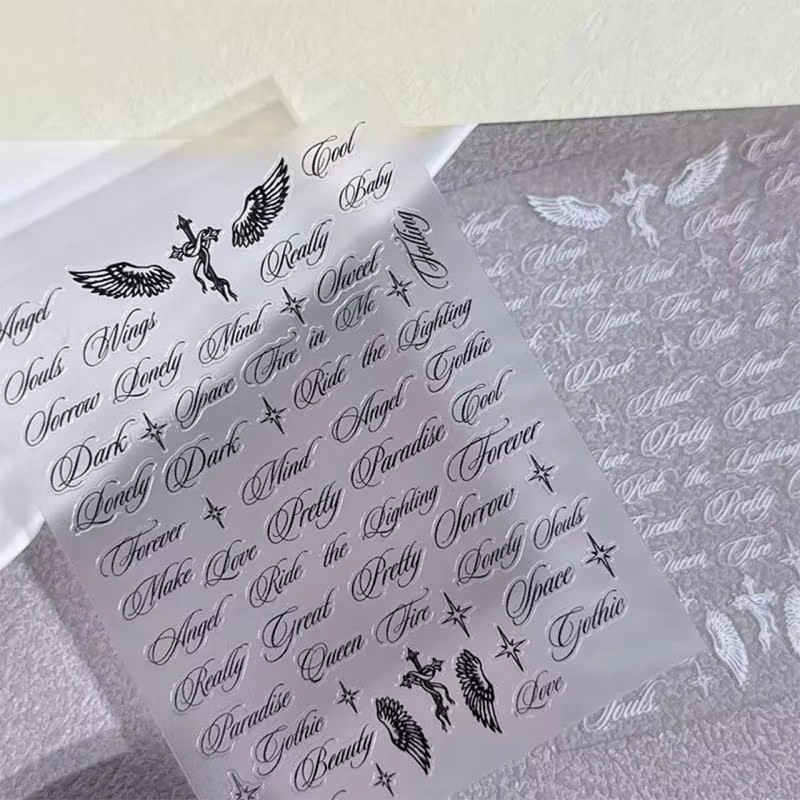 Cool
Baby
Really
Falling
Angel
Sweet
Souls Wings
Sorrow Lonely Mind
Space Fire in Me
Dark
Ride the Lighting
Lonely Dark
Gothic
Mind Angel
Forever
Pretty Paradise Cool
Make Love
Forever
Angel
Ride the Lighting
Sorrow
Really Great Pretty
Lonely Souls
Queen Fire
Space
Paradise
Gothic
Gothic
Love
Beauty
Cool
Angel
Really
Wings
Sweet
Lonely Mind
Space Fire in Me
Dark
Ride the
Mind Angel
Love Pretty
Ride the Lighting
Great Pretty
Queen Fire
Souls